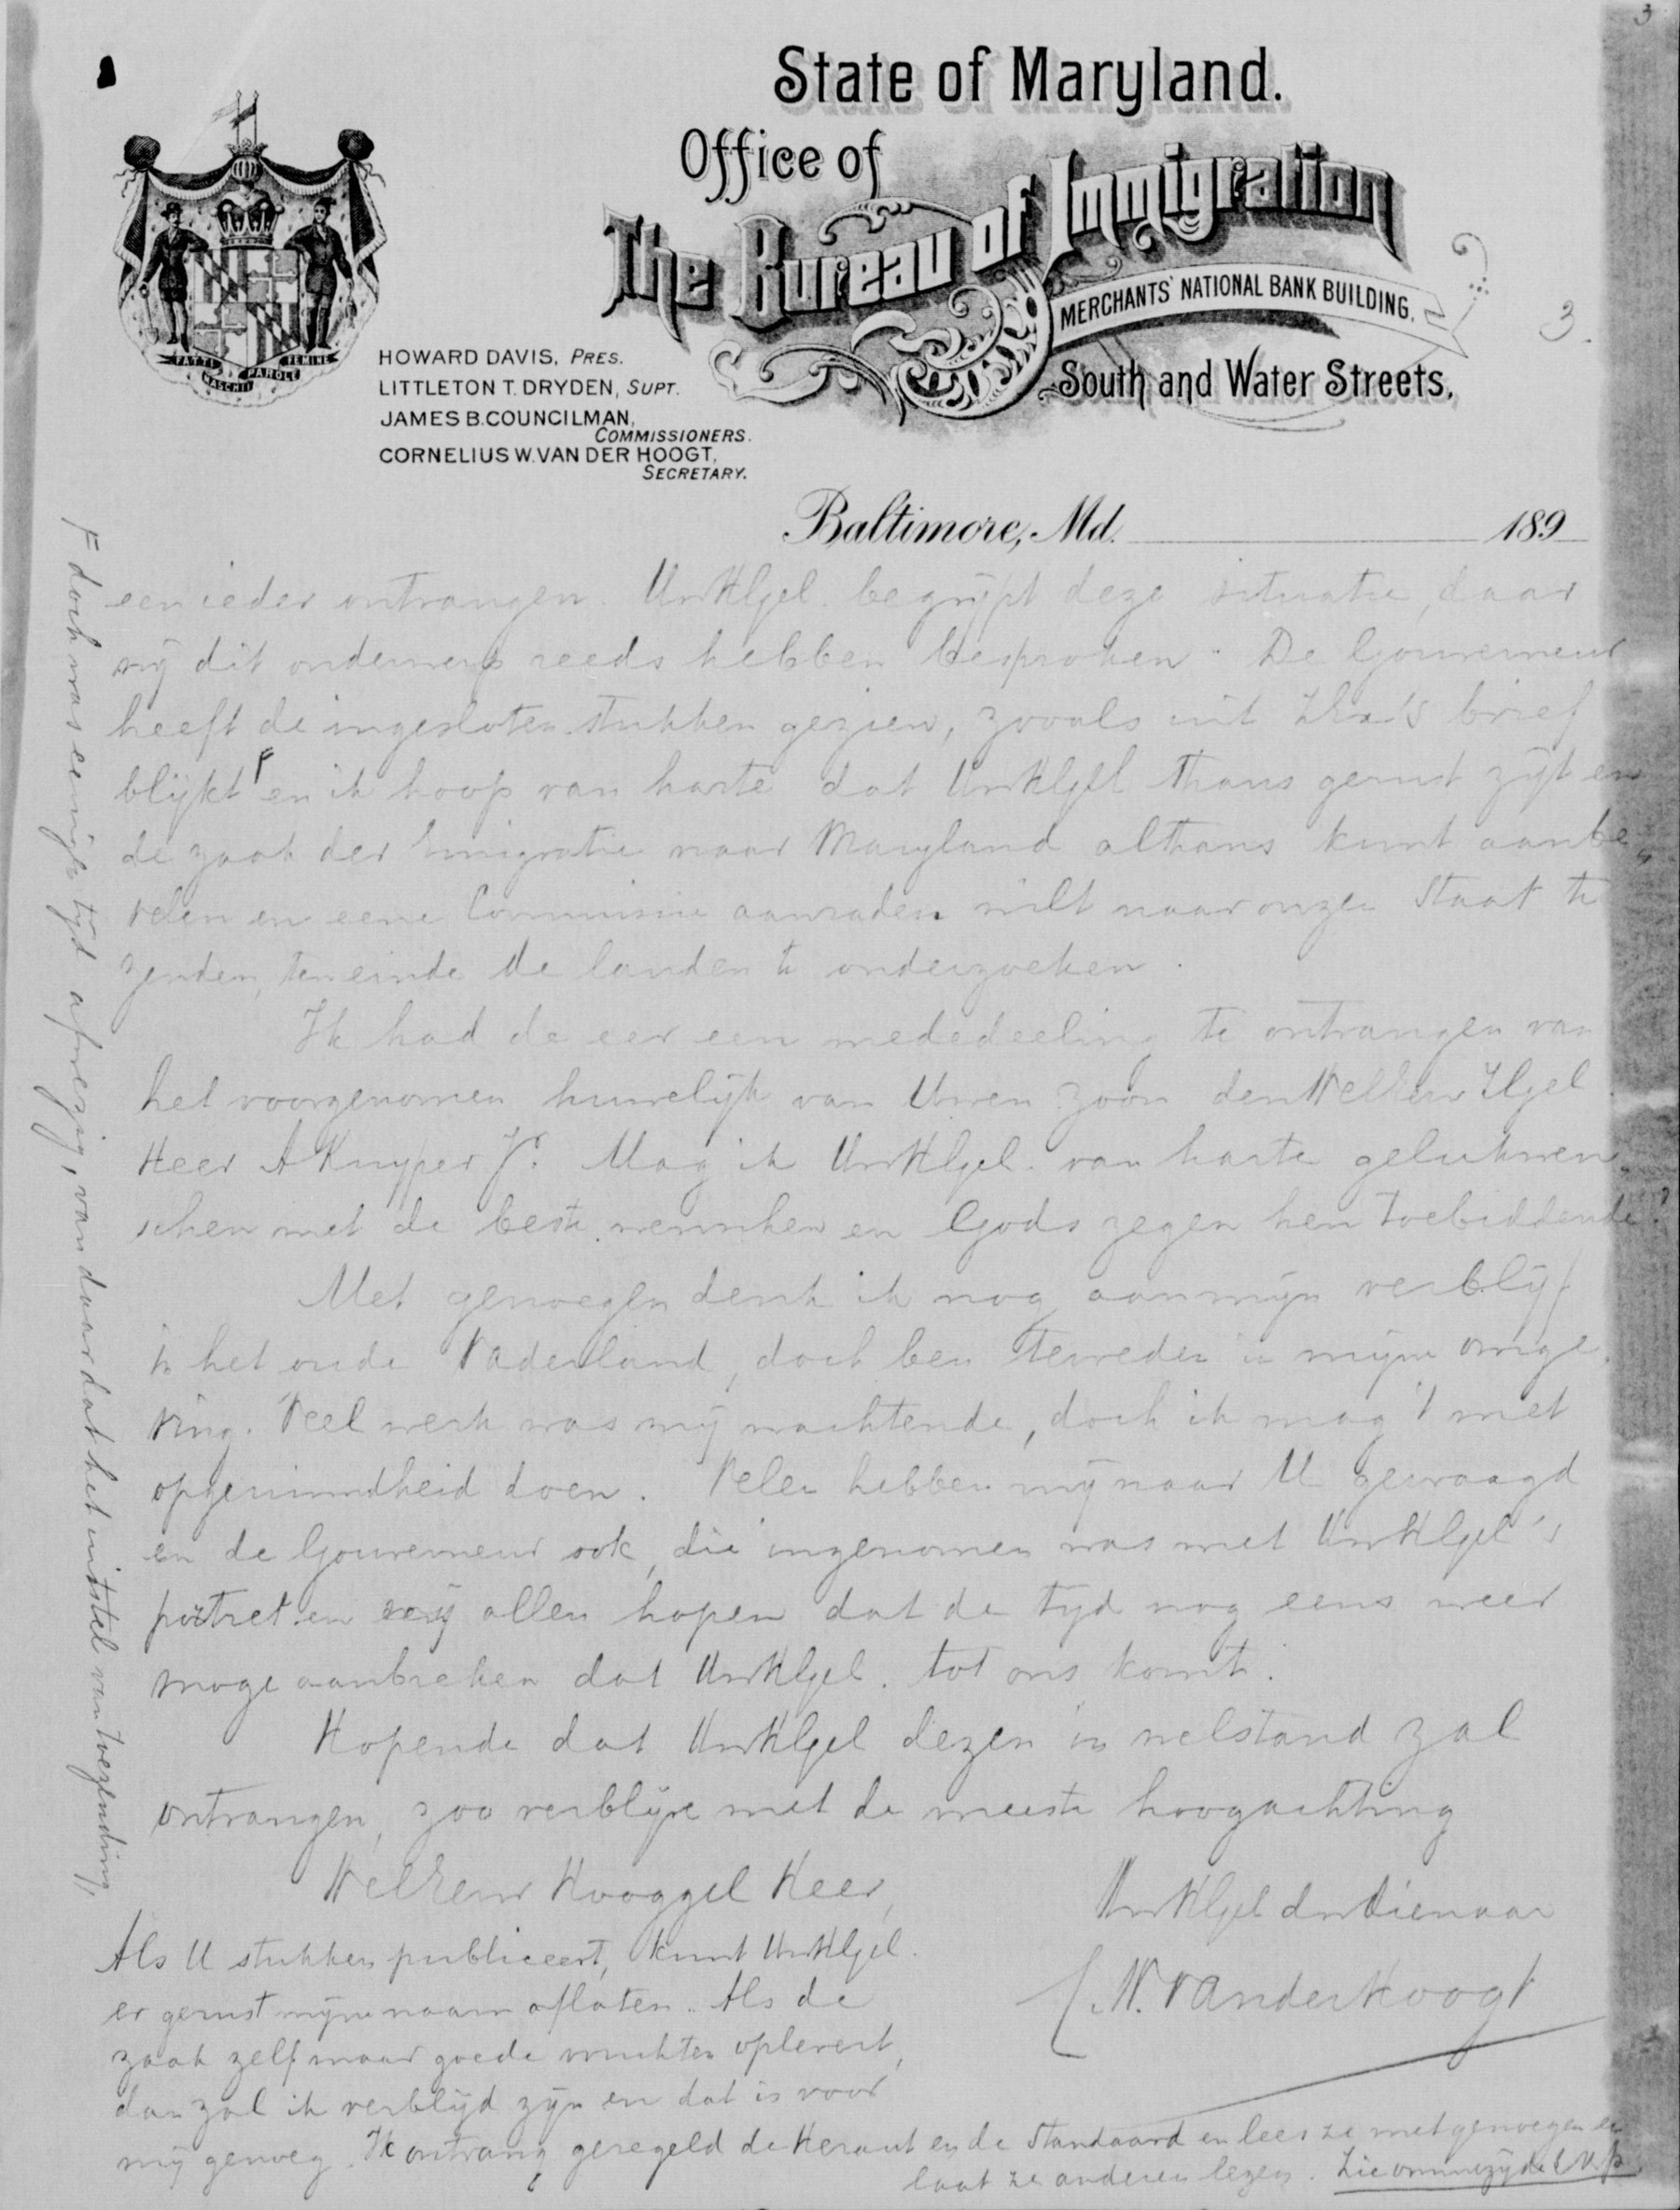 3
State of Maryland.
Office of
The Bureau of Immigration
MERCHANTS' NATIONAL BANK BUILDING,
South and Water Streets,
3.
FATTI MASCHII PAROLE FEMINE
HOWARD DAVIS, PRES.
LITTLETON T. DRYDEN, SUPT.
JAMES B. COUNCILMAN,
COMMISSIONERS.
CORNELIUS W. VAN DER HOOGT,
SECRETARY.
Baltimore, Md. 189
een ieder ontvangen. UwHlgel. begrijpt deze situatie, daar
wij dit onderwerp reeds hebben besproken. De Gouverneur
heeft de ingesloten stukken gezien, zooals uit brief
blijkt F en ik hoop van harte dat UwHlgel thans gerust zijt en
de zaak der Emigratie naar Maryland althans kunt aanbe„
velen en eene Commissie aanraden wilt naar onzen Staat te
zenden, teneinde de landen te onderzoeken.
Ik had de eer een mededeeling te ontvangen van
het voorgenomen huwelijk van Uwen zoon den WelEerw Zgel
Heer A Kuyper Jr. Mag ik UwHlgel. van harte gelukwen„
schen met de beste wenschen en Gods zegen hen toebiddende.
Met genoegen denk ik nog aan mijn verblijf
in het oude Vaderland, doch ben tevreden in mijne omge„
ving. Veel werk was mij wachtende, doch ik mag 't met
opgeruimdheid doen. Velen hebben mij naar U gevraagd
en de Gouverneur ook, die ingenomen was met UwHlgel's
portret en wij allen hopen dat de tijd nog eens weer
moge aanbreken dat UwHlgel. tot ons komt.
Hopende dat UwHlgel dezen in welstand zal
ontvangen, zoo verblijve met de meeste hoogachting
WelEerw Hooggel Heer,
UwHlgel dw dienaar
C. W. van der Hoogt
Als U stukken publiceert, kunt UwHlgel.
er gerust mijne naam aflaten. Als de
zaak zelf maar goede vruchten oplevert,
dan zal ik verblijd zijn en dat is voor
mij genoeg. Ik ontvang geregeld de Heraut en de Standaard en lees ze met genoegen en
laat ze anderen lezen. Zie ommezijde
F doch was eenige tijd afwezig, vandaar dat het uitstel van toezending,